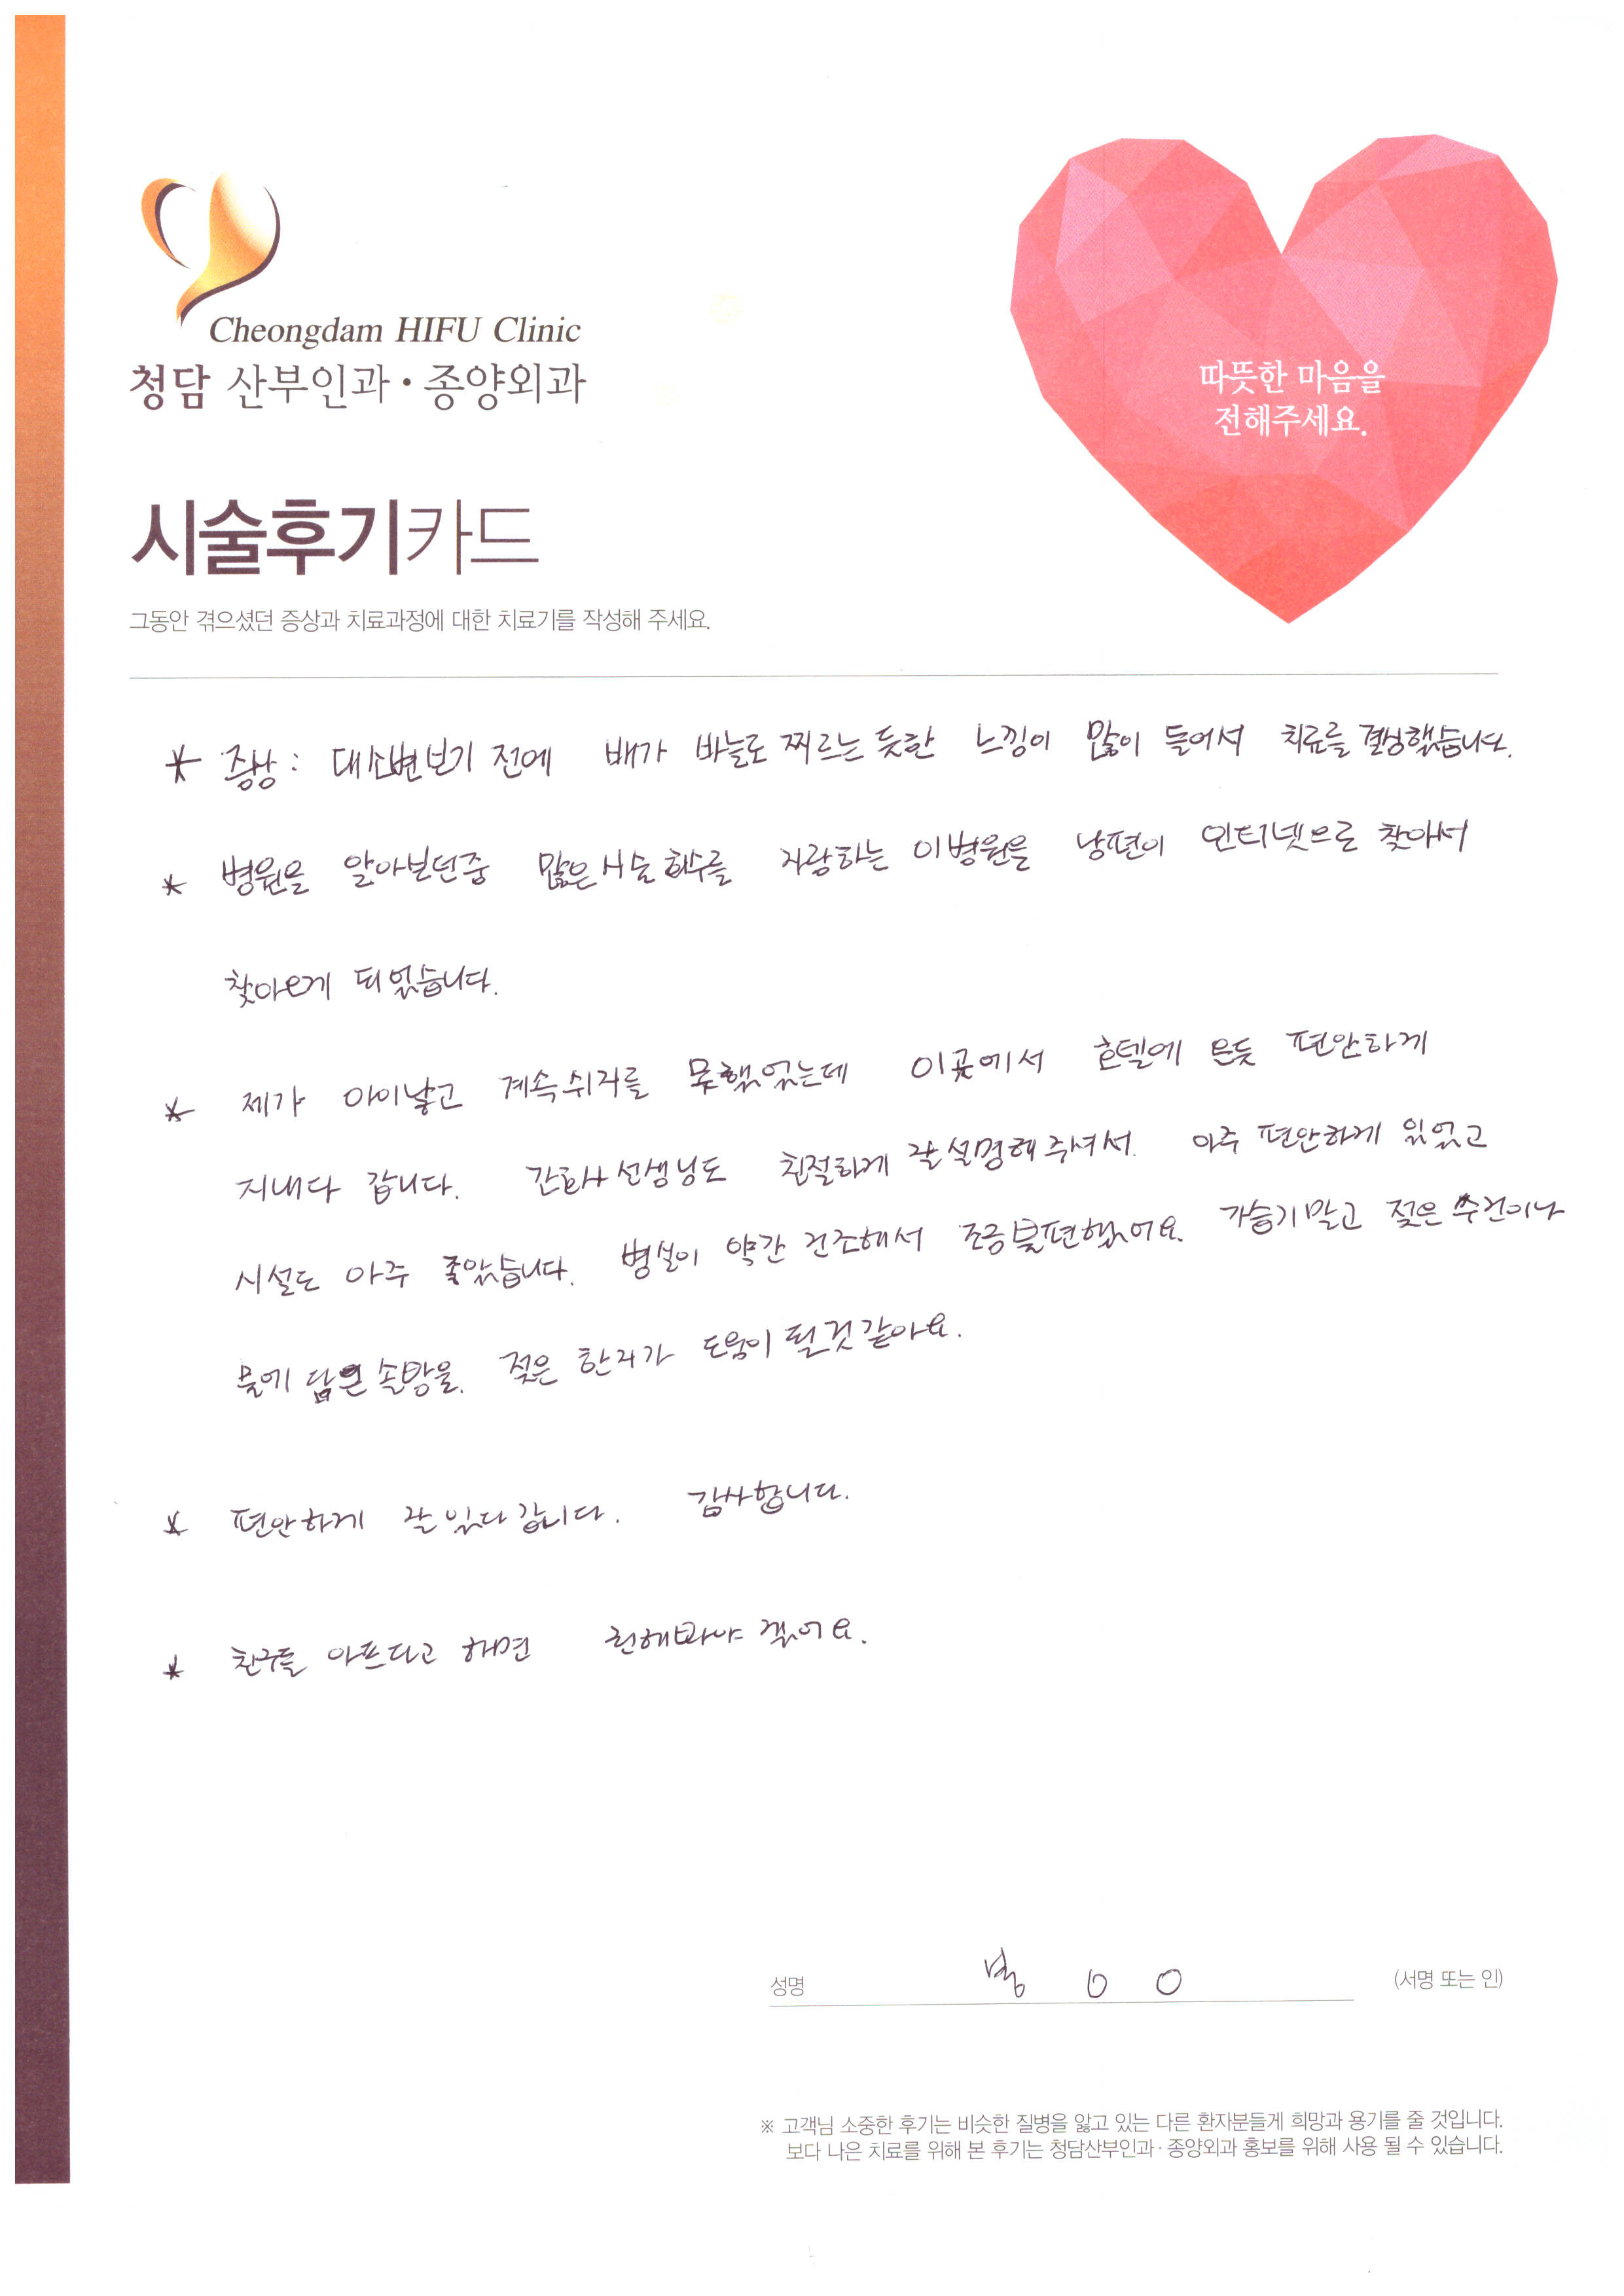 Cheongdam HIFU Clinic
청담 산부인과·종양외과
따뜻한 마음을
전해주세요.
시술후기카드
그동안 겪으셨던 증상과 치료과정에 대한 치료기를 작성해 주세요.
* 증상 : 대소변보기 전에 배가 바늘로 찌르는 듯한 느낌이 많이 들어서 치료를 결심했습니다.
* 병원을 알아보던중 많은 시술 횟수를 자랑하는 이병원을 남편이 인터넷으로 찾아서
찾아오게 되었습니다.
* 제가 아이낳고 계속 쉬지를 못했었는데 이곳에서 호텔에 온듯 편안하게
지내다 갑니다. 간호사 선생님도 친절하게 잘 설명해 주셔서. 아주 편안하게 있었고
시설도 아주 좋았습니다. 병실이 약간 건조해서 조금 불편했어요. 가습기말고 젖은 수건이나
물에 담은 솔방울. 젖은 한지가 도움이 될것같아요.
* 편안하게 잘 있다 갑니다. 감사합니다.
* 친구들 아프다고 하면 권해봐야 겠어요.
성명 ○ ○ (서명 또는 인)
※ 고객님 소중한 후기는 비슷한 질병을 앓고 있는 다른 환자분들게 희망과 용기를 줄 것입니다.
보다 나은 치료를 위해 본 후기는 청담산부인과·종양외과 홍보를 위해 사용 될 수 있습니다.